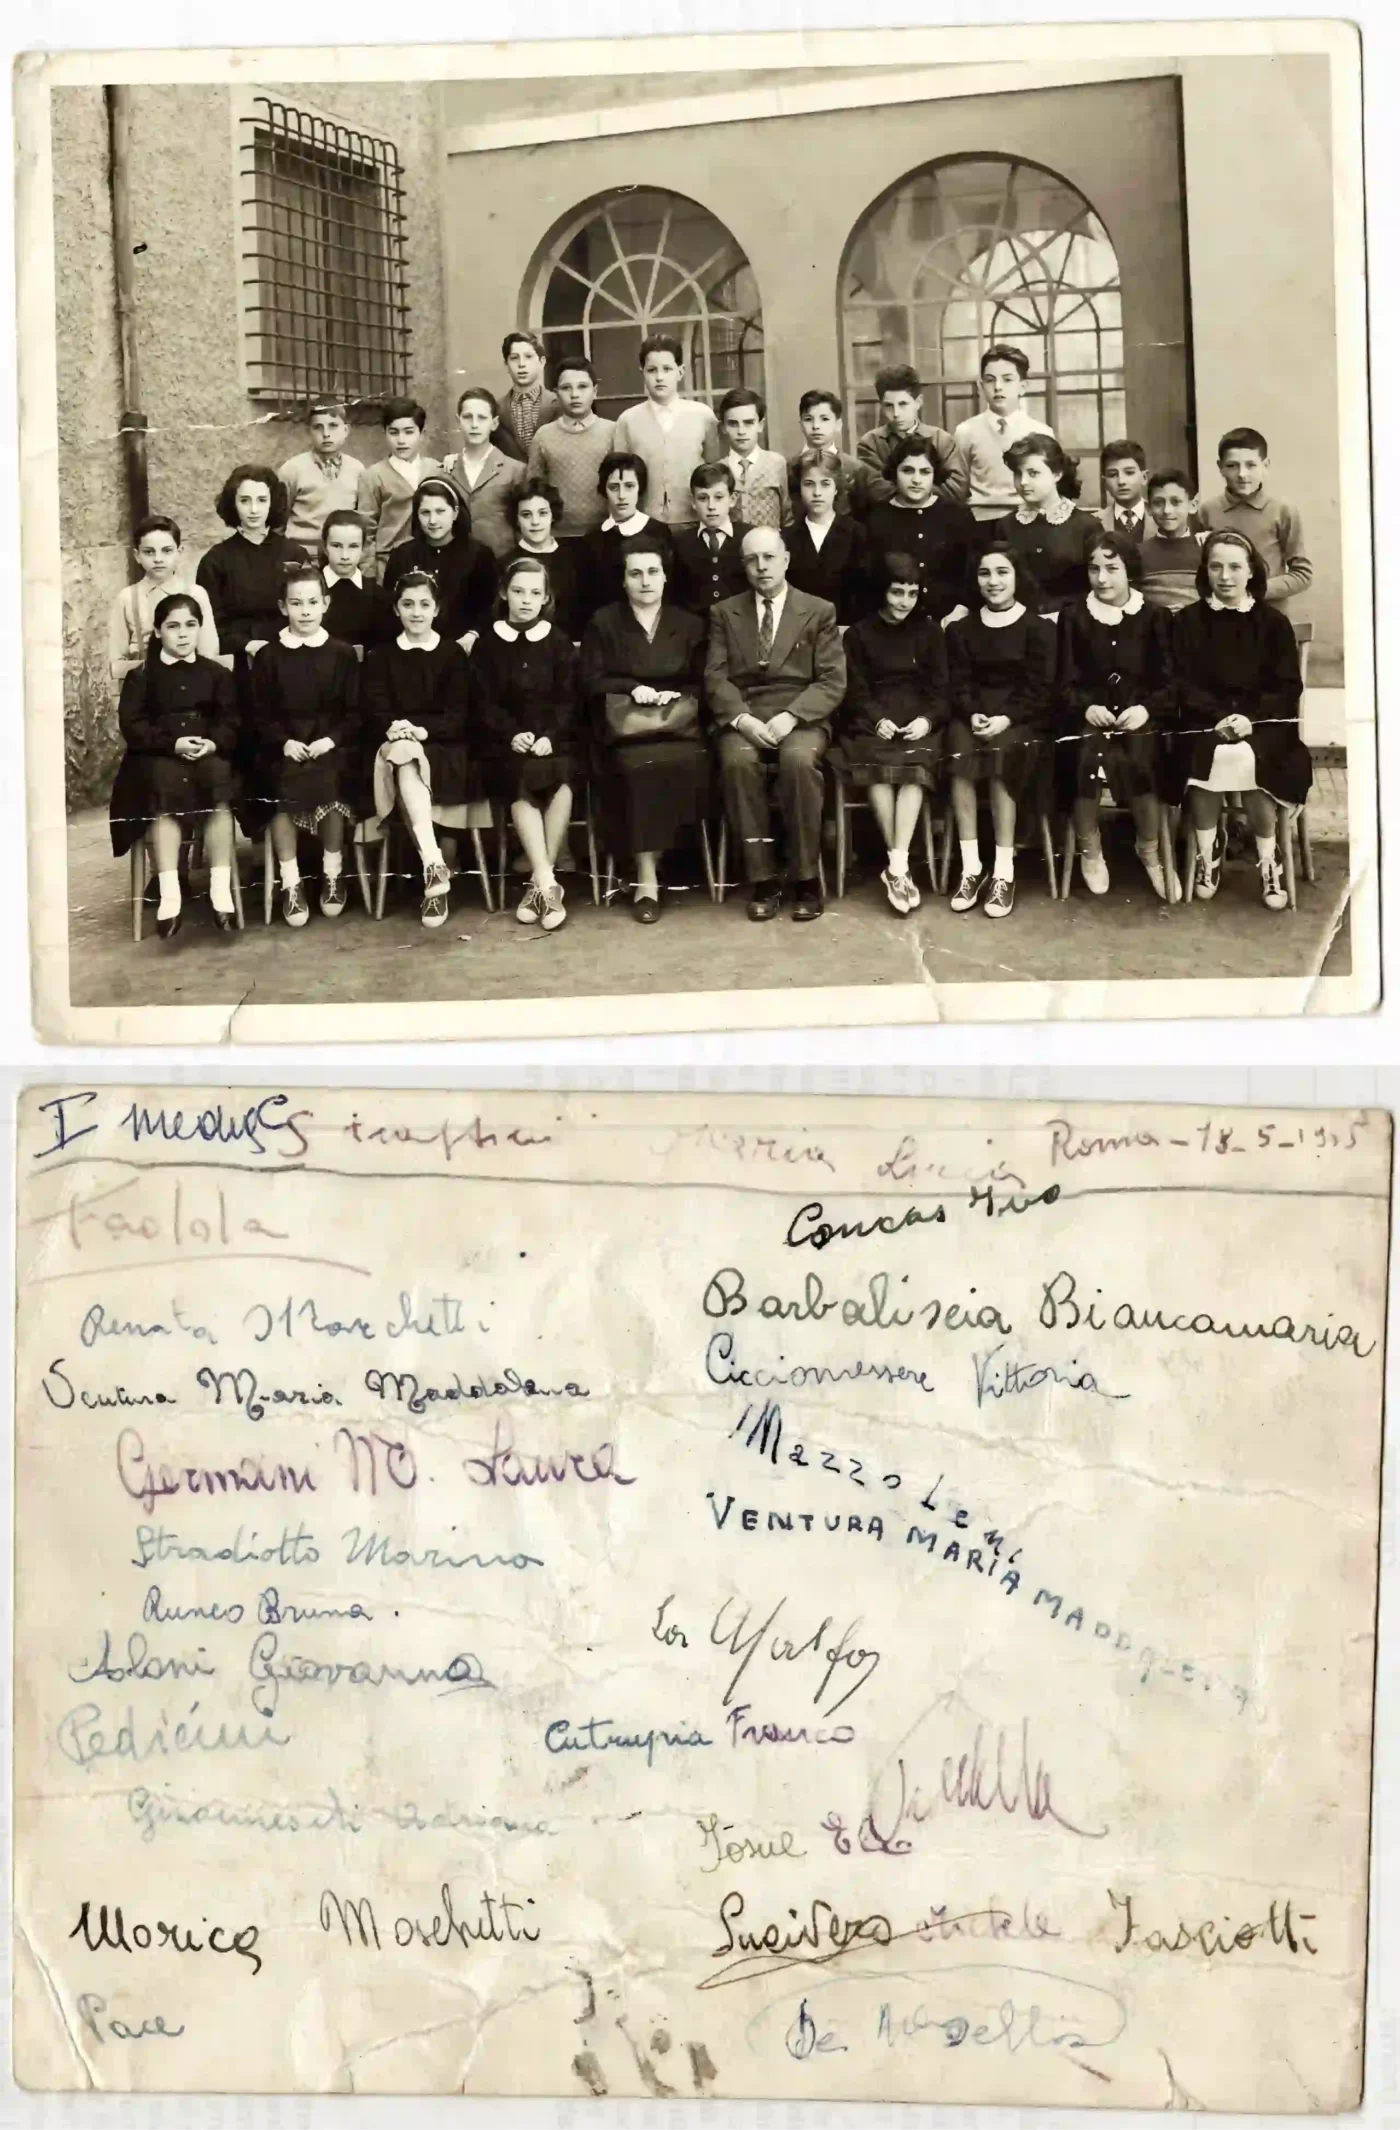 I media G
Maria Lucia Roma - 18-5-19
Fadda
Concas Ivo
Renata Marchetti
Barbaliscia Biancamaria
Ventura Maria Maddalena
Cicciomessere Vittoria
Germani M. Laura
Mazzoleni
VENTURA MARIA MADDALENA
Stradiotto Marino
Runco Bruna.
Giovanna
Pedicini
Cutrupia Franco
Adriana
Marica Moschetti
Lucivero Fasciotti
Pace
De